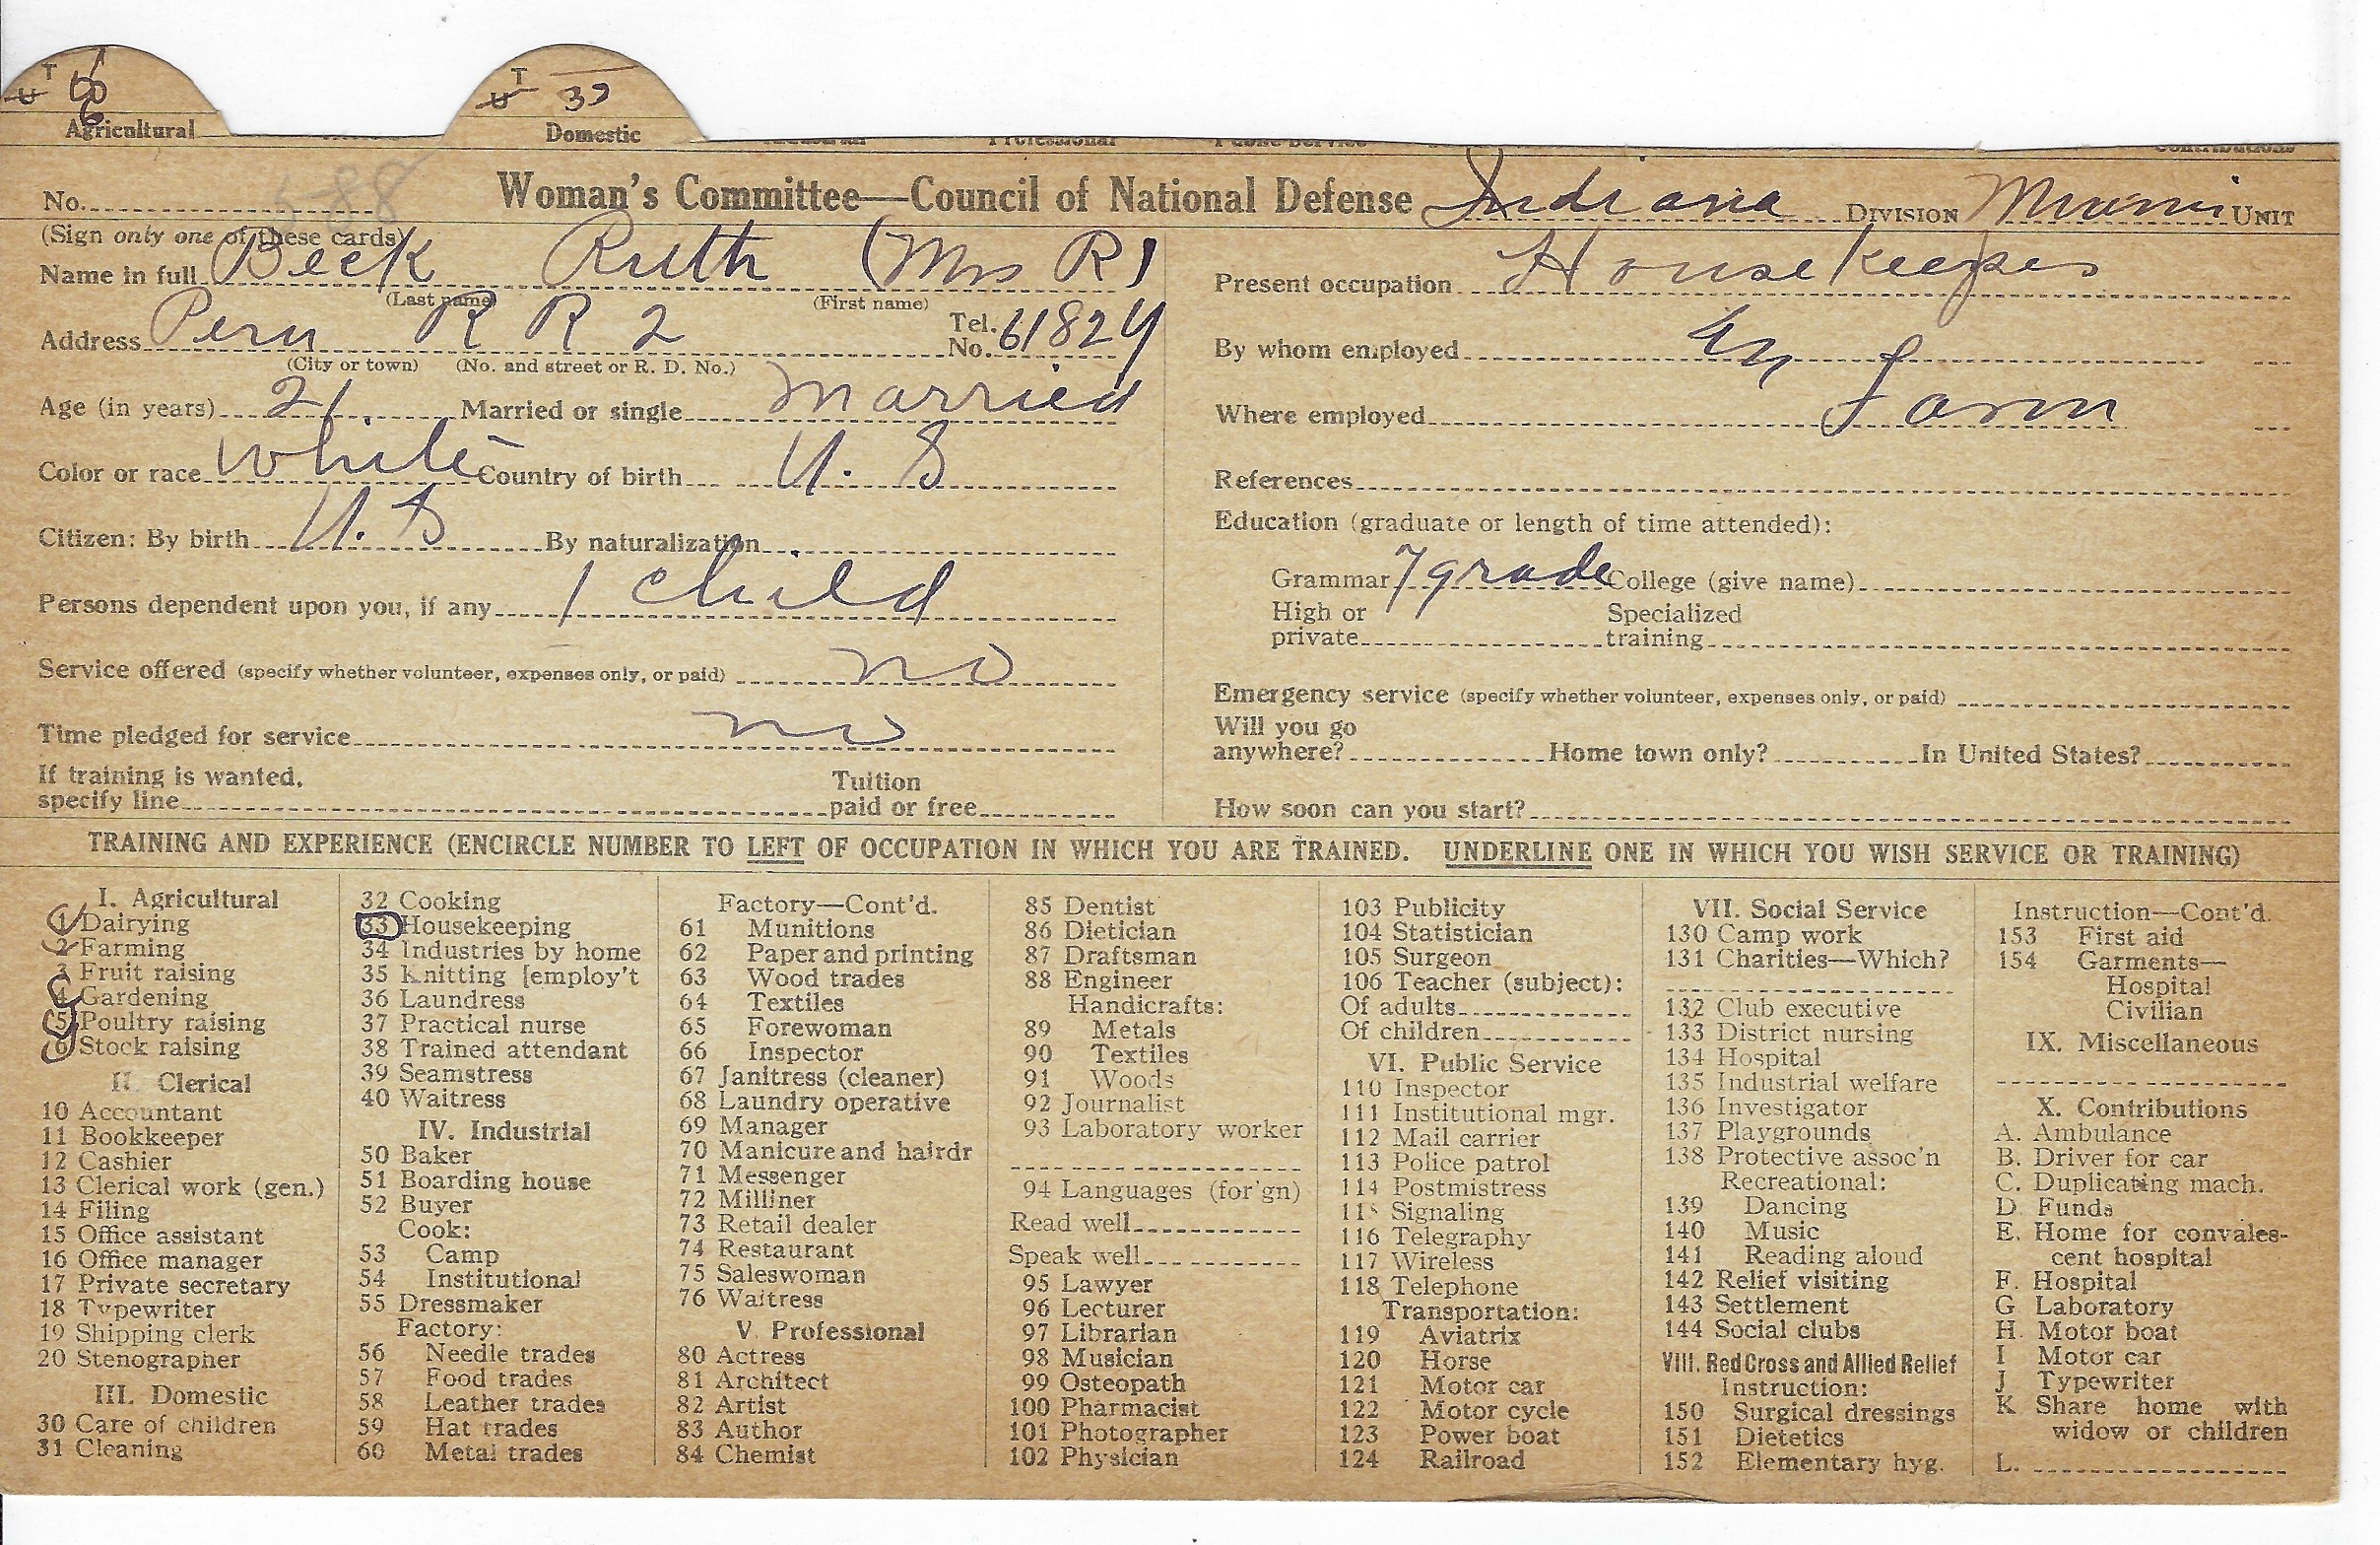 T
U
6
Agricultural
T
U
33
Domestic
No. 588 Woman's Committee—Council of National Defense Indiana DIVISION Miami UNIT
(Sign only one of these cards)
Name in full Beck Ruth (Mrs R)
(Last name) (First name)
Address Peru R R 2 Tel. No. 6182Y
(City or town) (No. and street or R. D. No.)
Age (in years) 21. Married or single Married
Color or race White Country of birth U. S
Citizen: By birth U. S By naturalization
Persons dependent upon you, if any 1 child
Service offered (specify whether volunteer, expenses only, or paid) no
Time pledged for service no
If training is wanted, specify line Tuition paid or free
Present occupation Housekeeper
By whom employed
Where employed Farm
References
Education (graduate or length of time attended):
Grammar 7 grade College (give name)
High or private Specialized training
Emergency service (specify whether volunteer, expenses only, or paid)
Will you go anywhere? Home town only? In United States?
How soon can you start?
TRAINING AND EXPERIENCE (ENCIRCLE NUMBER TO LEFT OF OCCUPATION IN WHICH YOU ARE TRAINED. UNDERLINE ONE IN WHICH YOU WISH SERVICE OR TRAINING)
I. Agricultural
1 Dairying
2 Farming
3 Fruit raising
4 Gardening
5 Poultry raising
6 Stock raising
II. Clerical
10 Accountant
11 Bookkeeper
12 Cashier
13 Clerical work (gen.)
14 Filing
15 Office assistant
16 Office manager
17 Private secretary
18 Typewriter
19 Shipping clerk
20 Stenographer
III. Domestic
30 Care of children
31 Cleaning
32 Cooking
33 Housekeeping
34 Industries by home
35 Knitting [employ't
36 Laundress
37 Practical nurse
38 Trained attendant
39 Seamstress
40 Waitress
IV. Industrial
50 Baker
51 Boarding house
52 Buyer
Cook:
53 Camp
54 Institutional
55 Dressmaker
Factory:
56 Needle trades
57 Food trades
58 Leather trades
59 Hat trades
60 Metal trades
Factory—Cont'd.
61 Munitions
62 Paper and printing
63 Wood trades
64 Textiles
65 Forewoman
66 Inspector
67 Janitress (cleaner)
68 Laundry operative
69 Manager
70 Manicure and hairdr
71 Messenger
72 Milliner
73 Retail dealer
74 Restaurant
75 Saleswoman
76 Waitress
V. Professional
80 Actress
81 Architect
82 Artist
83 Author
84 Chemist
85 Dentist
86 Dietician
87 Draftsman
88 Engineer
Handicrafts:
89 Metals
90 Textiles
91 Woods
92 Journalist
93 Laboratory worker
94 Languages (for'gn)
Read well
Speak well
95 Lawyer
96 Lecturer
97 Librarian
98 Musician
99 Osteopath
100 Pharmacist
101 Photographer
102 Physician
103 Publicity
104 Statistician
105 Surgeon
106 Teacher (subject):
Of adults
Of children
VI. Public Service
110 Inspector
111 Institutional mgr.
112 Mail carrier
113 Police patrol
114 Postmistress
115 Signaling
116 Telegraphy
117 Wireless
118 Telephone
Transportation:
119 Aviatrix
120 Horse
121 Motor car
122 Motor cycle
123 Power boat
124 Railroad
VII. Social Service
130 Camp work
131 Charities—Which?
132 Club executive
133 District nursing
134 Hospital
135 Industrial welfare
136 Investigator
137 Playgrounds
138 Protective assoc'n
Recreational:
139 Dancing
140 Music
141 Reading aloud
142 Relief visiting
143 Settlement
144 Social clubs
VIII. Red Cross and Allied Relief
Instruction:
150 Surgical dressings
151 Dietetics
152 Elementary hyg.
Instruction—Cont'd.
153 First aid
154 Garments—
Hospital
Civilian
IX. Miscellaneous
X. Contributions
A. Ambulance
B. Driver for car
C. Duplicating mach.
D. Funds
E. Home for convales-
cent hospital
F. Hospital
G Laboratory
H. Motor boat
I Motor car
J Typewriter
K Share home with
widow or children
L.